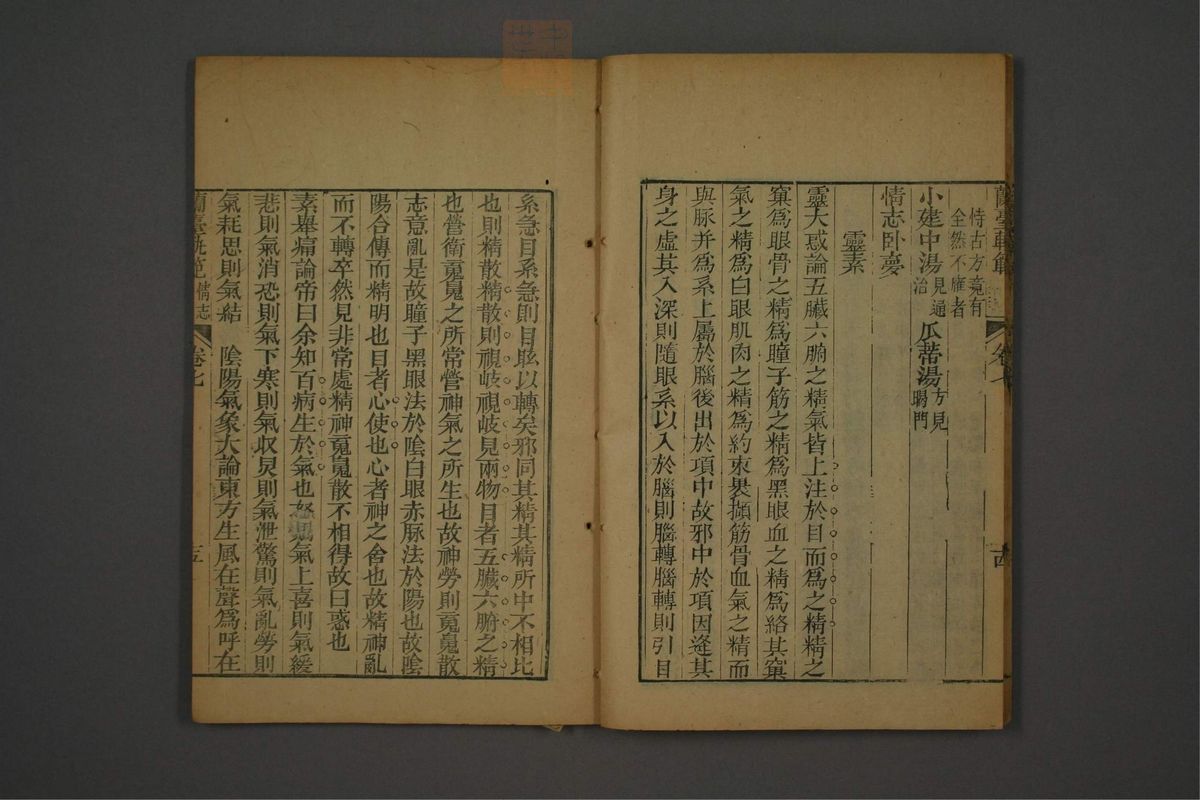 蘭臺軌範 卷七
恃古方竟有
全然不應者
小建中湯見通治 瓜蒂湯方見暍門
情志卧夢
靈素
靈大惑論五臟六腑之精氣皆上注於目而爲之精精之
窠爲眼骨之精爲瞳子筋之精爲黑眼血之精爲絡其窠
氣之精爲白眼肌肉之精爲約束裹擷筋骨血氣之精而
與脉并爲系上屬於腦後出於項中故邪中於項因逢其
身之虛其入深則隨眼系以入於腦則腦轉腦轉則引目
系急目系急則目眩以轉矣邪同其精其精所中不相比
也則精散精散則視岐視岐見兩物目者五臟六腑之精
也營衛䰟魄之所常營神氣之所生也故神勞則䰟魄散
志意亂是故瞳子黑眼法於陰白眼赤脉法於陽也故陰
陽合傳而精明也目者心使也心者神之舍也故精神亂
而不轉卒然見非常處精神䰟魄散不相得故曰惑也
素舉痛論帝曰余知百病生於氣也怒則氣上喜則氣緩
悲則氣消恐則氣下寒則氣收炅則氣泄驚則氣亂勞則
氣耗思則氣結 陰陽氣象大論東方生風在聲爲呼在
蘭臺軌範 情志 卷七